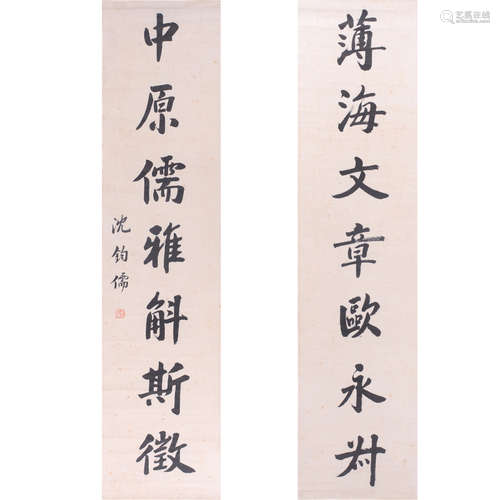 薄海文章歐永叔
中原儒雅斛斯徵
沈鈞儒
艺狐在线